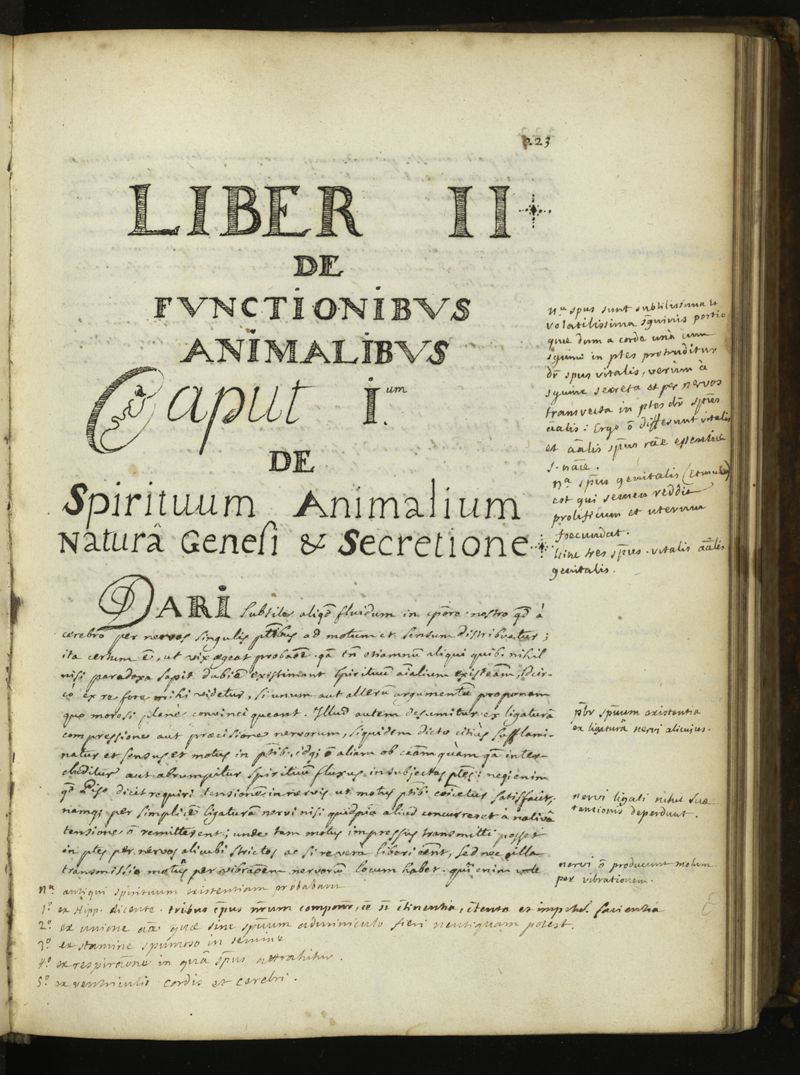 223
LIBER II
DE
FVNCTIONIBVS
ANIMALIBVS
Caput I.um
DE
Spirituum Animalium
Naturâ Genesi & Secretione
DARI subtile aliqd fluidum in corpore nostro qd à
cerebro per nervos singulis ptibus ad motum et sensum distribuatur;
ita certum ē, ut vix egeat
nisi paradoxa sapit dubiē existimant spirituum aīalium
re fore mihi videtur, si unum aut alterū argumentū proponam
quo morosi planè convinci queant. Illud autem desumitur ex ligaturâ
compressione aut praecisione nervorum, siquidem dicto citiùs sufflami-
natur et sensus et motus in ptib.
cluditur aut abrumpitur spirituū fluxus in subjectas ptes: neq; enim
qd dicet requiri tensionem in nervis ut motus ptib satisfaciat,
namq; per simplicē ligaturam nervi nisi quidpia aliud concurreret à nativâ
tensione ō remitterent; unde tam motus impressus transmitti posset
in ptes per nervos alicubi strictos ac si re vera liberi eēnt, sed nec illa
transmissio motûs per vibraōem nervorū locum habet. qui enim
nª antiqui spirituum existentiam probabant
1º ex Hipp. dicente. tribus
2º ex unione quae sine spūum adminiculo fieri neutiquam potest.
3º ex stamine spumoso in semine
4º ex respiraōne in quâ spūs attrahitur.
5º ex ventriculis cordis et cerebri.
nª spūs sunt subtilissima et
volatilissima sguinis portio
quae dum a corde unà cum
sguine in ptes protruditur
dr spūs vitalis, verùm à
sguine secreta et per nervos
transvecta in ptes dr spūs
aīalis: Ergo ō differunt vitalis
et aālis spūs rāe essentiae
s. nāe.
nª spūs genitalis
est qui semen reddit
prolificum et uterum
foecundat.
hinc tres spūs. vitalis aālis
genitalis.
pbr spūum existentia
ex ligaturâ nervi alicujus.
nervi ligati nihil suae
tentionis deperdunt.
nervi ō producunt motum
per vibrationem.